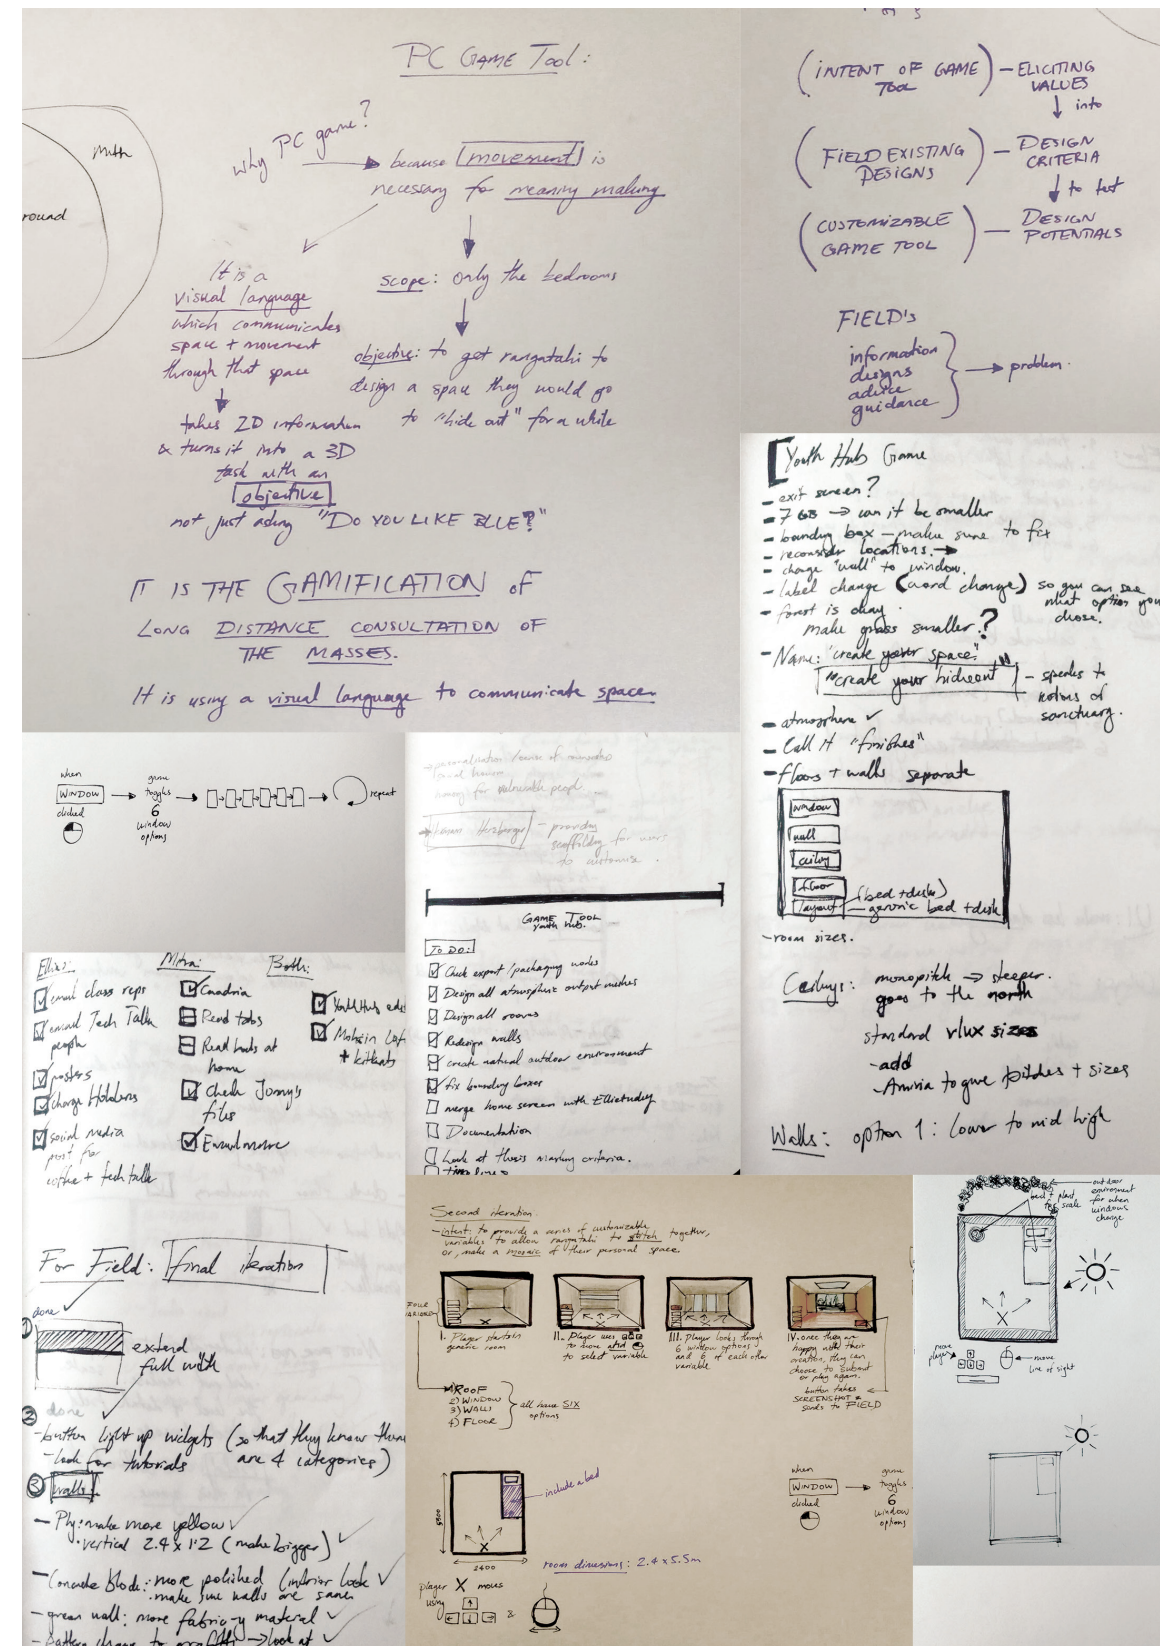 PC GAME TOOL:
why PC game?
because movement is
necessary for meaning making
It is a
visual language
which communicates
space + movement
through that space
takes 2D information
& turns it into a 3D
task with an
objective
not just asking "DO YOU LIKE BLUE?"
scope: only the bedrooms
objective: to get rangatahi to
design a space they would go
to "hide out" for a while
IT IS THE GAMIFICATION OF
LONG DISTANCE CONSULTATION OF
THE MASSES.
It is using a visual language to communicate space
round
(INTENT OF GAME TOOL) — ELICITING VALUES
into
(FIELD EXISTING DESIGNS) — DESIGN CRITERIA
to test
(CUSTOMIZABLE GAME TOOL) — DESIGN POTENTIALS
FIELD's
information
designs
advice
guidance
problem.
Youth Hub Game
- exit screen?
- 7 GB → can it be smaller
- bounding box - make sure to fix
- reconsider locations. →
- change "wall" to window.
- label change (word change) so you can see
what option you
chose.
- forest is okay.
make grass smaller?
- Name: "create your space"
"create your hideout" - speaks to
notions of
sanctuary.
- atmosphere ✓
- Call it "finishes"
- floors + walls separate
window
wall
ceiling
floor
layout (bed + desk)
generic bed + desk
- room sizes.
Ceilings: monopitch → steeper.
goes to the north
standard vlux sizes
- add
- to give pitches + sizes
Walls: option 1: lower to mid high
when
WINDOW
clicked
game
toggles
6
window
options
repeat
personalisation
for vulnerable people
Herzberger - providing
scaffolding for users
to customise.
GAME TOOL
youth hub.
TO DO:
Check export/packaging works
Design all atmospheric output meshes
Design all rooves
Redesign walls
create natural outdoor environment
fix bounding boxes
merge home screen with
Documentation
Look at thesis marking criteria.
Both:
email class reps
email Tech Talk
people
posters
change Holders
social media
post for
coffee + tech talk
Read tabs
Read books at
home
Check Jonny's
files
For Field: final iteration
done ✓
1
extend
full width
2 done
- button light up widgets (so that they know there
are 4 categories)
- look for tutorials
3 walls
- Ply: make more yellow ✓
• vertical 2.4 x 1.2 (make bigger) ✓
- Concrete Block: more polished (interior look ✓
• make sure walls are same
- green wall: more fabric-y material ✓
Second iteration.
- intent: to provide a series of customizable
variables to allow rangatahi to stitch together,
or, make a mosaic of their personal space.
FOUR
VARIABLES
I. Player starts in
generic room
II. Player uses
to move and
to select variable
III. Player looks through
6 window options
and 6 of each other
variable.
IV. once they are
happy with their
creation, they can
choose to submit
or play again.
button takes
SCREENSHOT &
sends to FIELD
1) ROOF
2) WINDOW
3) WALL
4) FLOOR
all have SIX
options
include a bed
5500
2400
room dimensions: 2.4 x 5.5m
player X moves
using
&
when
WINDOW
clicked
game
toggles
6
window
options
outdoor
environment
for when
windows
change
bed + plant
for scale
move
player
move
line of sight